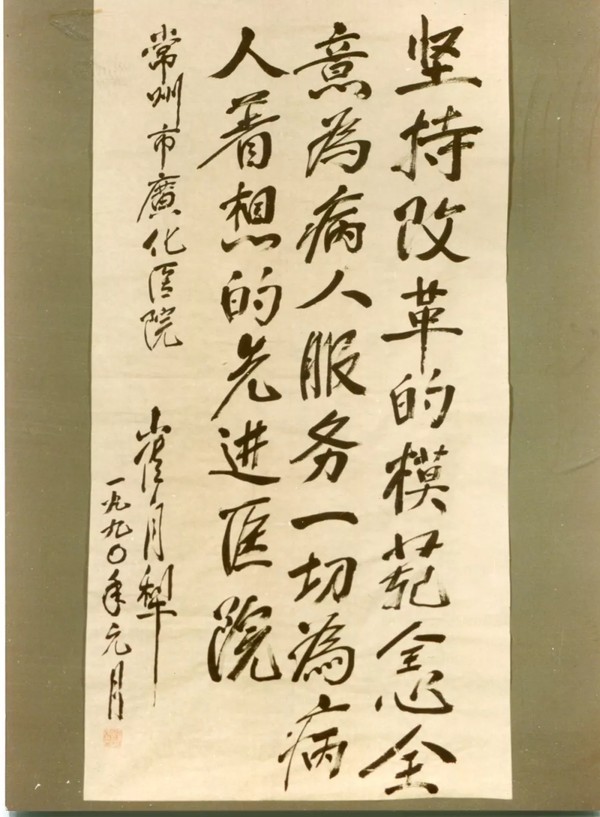 坚持改革的模范全心全
意為病人服务一切為病
人着想的先进医院
常州市廣化医院
崔月犁
一九九〇年元月